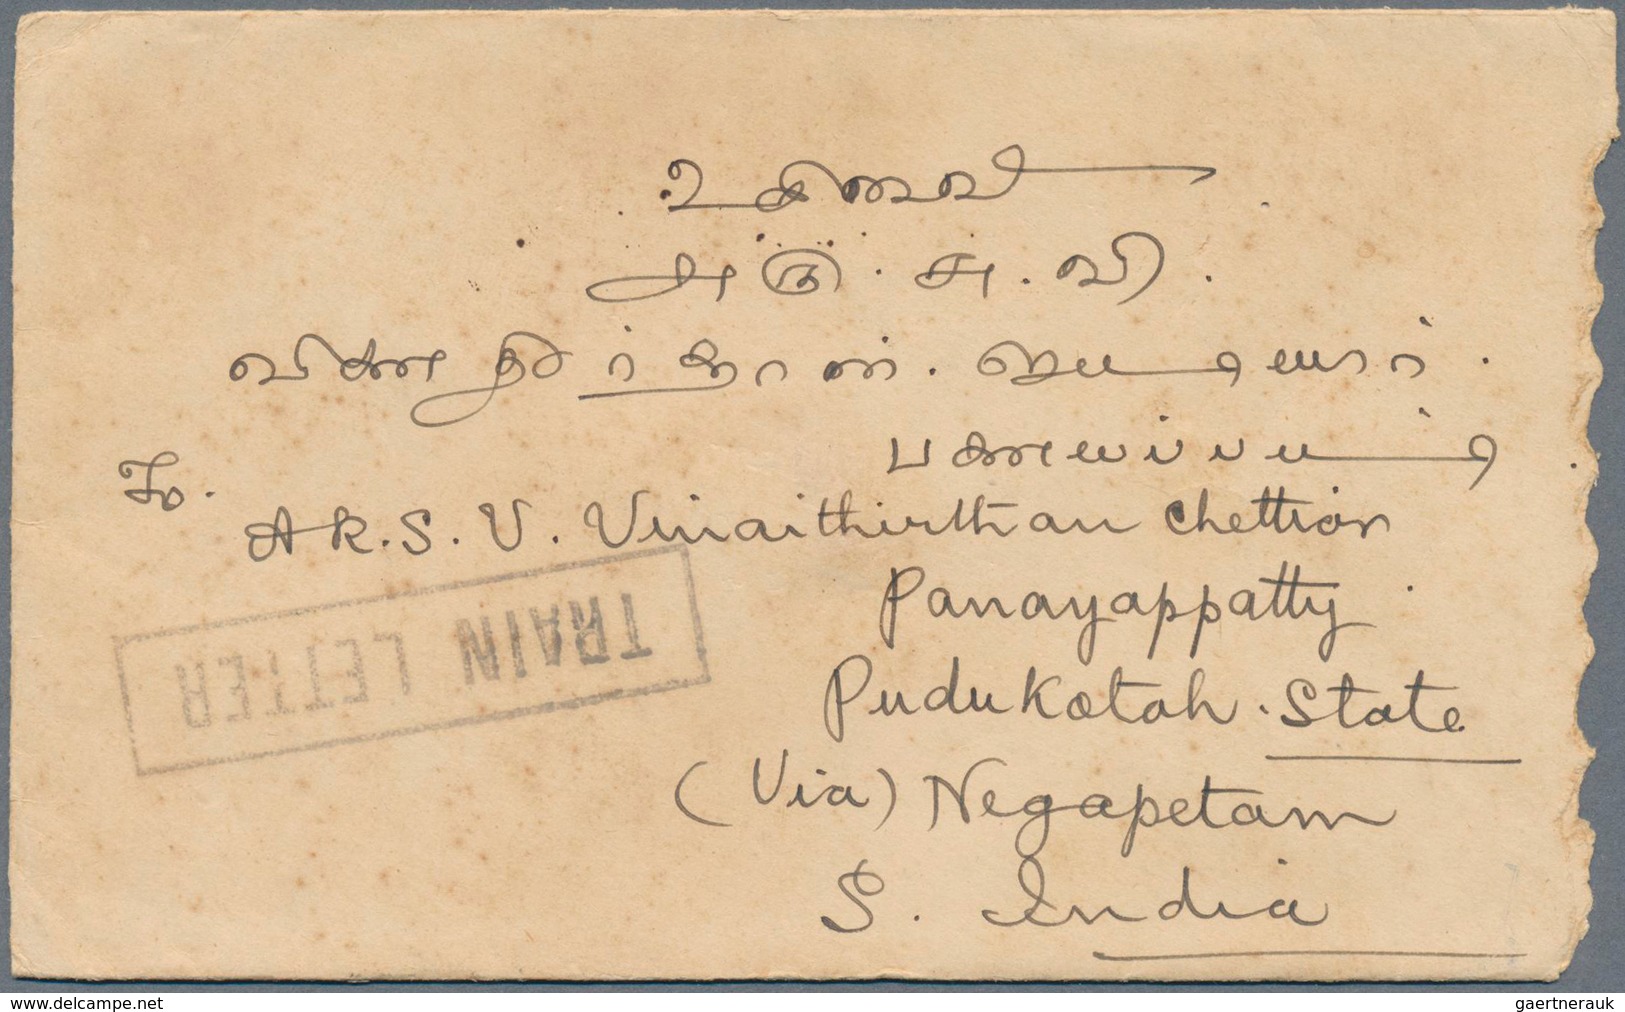 அரு. சு. வி.
வினை தீர்த்தான். செட்டியார்.
பனையப்பட்டி.
To.
AR. S. V. Vinaithirthan Chettiar
Panayappatty
Pudukotah. State
(Via) Negapetam
S. India
TRAIN LETTER
www.delcampe.net
gaertnerauk